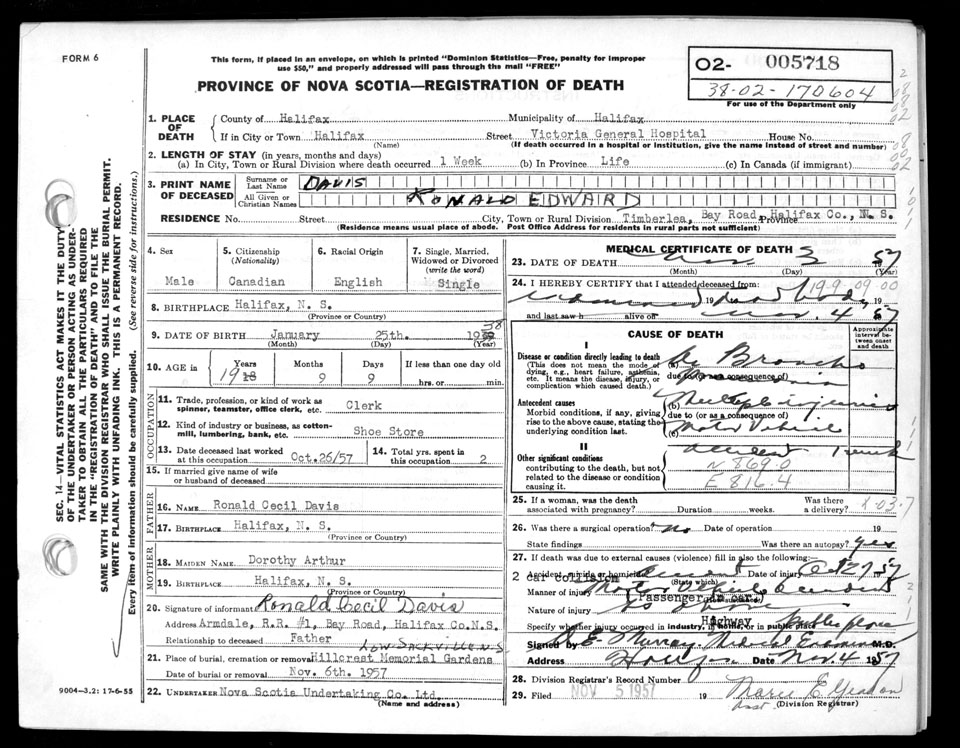 FORM 6
This form, if placed in an envelope, on which is printed "Dominion Statistics—Free, penalty for improper
use $50," and properly addressed will pass through the mail "FREE"
PROVINCE OF NOVA SCOTIA—REGISTRATION OF DEATH
02- 005718
38-02-170604
For use of the Department only
1. PLACE OF DEATH
County of Halifax Municipality of Halifax
If in City or Town Halifax Street Victoria General Hospital House No.
(Name) (If death occurred in a hospital or institution, give the name instead of street and number)
2. LENGTH OF STAY (in years, months and days)
(a) In City, Town or Rural Division where death occurred 1 Week (b) In Province Life (c) In Canada (if immigrant)
3. PRINT NAME OF DECEASED
Surname or Last Name DAVIS
All Given or Christian Names RONALD EDWARD
RESIDENCE No. Street City, Town or Rural Division Timberlea, Bay Road, Province Halifax Co., N. S.
(Residence means usual place of abode. Post Office Address for residents in rural parts not sufficient)
4. Sex Male
5. Citizenship (Nationality) Canadian
6. Racial Origin English
7. Single, Married, Widowed or Divorced (write the word) Single
8. BIRTHPLACE Halifax, N. S.
(Province or Country)
9. DATE OF BIRTH January 25th. 19 38
(Month) (Day) (Year)
10. AGE in Years 19 Months 9 Days 9 If less than one day old hrs. or min.
OCCUPATION
11. Trade, profession, or kind of work as spinner, teamster, office clerk, etc. Clerk
12. Kind of industry or business, as cotton-mill, lumbering, bank, etc. Shoe Store
13. Date deceased last worked at this occupation Oct.26/57
14. Total yrs. spent in this occupation 2
15. If married give name of wife or husband of deceased
FATHER
16. NAME Ronald Cecil Davis
17. BIRTHPLACE Halifax, N. S.
(Province or Country)
MOTHER
18. MAIDEN NAME Dorothy Arthur
19. BIRTHPLACE Halifax, N. S.
(Province or Country)
20. Signature of informant Ronald Cecil Davis
Address Armdale, R.R. #1, Bay Road, Halifax Co.N.S.
Relationship to deceased Father
LOW SACKVILLE N S
21. Place of burial, cremation or removal Hillcrest Memorial Gardens
Date of burial or removal Nov. 6th. 1957
22. UNDERTAKER Nova Scotia Undertaking Co. Ltd.
(Name and address)
MEDICAL CERTIFICATE OF DEATH
23. DATE OF DEATH Nov 3 57
(Month) (Day) (Year)
24. I HEREBY CERTIFY that I attended deceased from:
199.09.00
19 19
and last saw h alive on Nov. 4 57
CAUSE OF DEATH
Approximate interval between onset and death
I
Disease or condition directly leading to death
(This does not mean the mode of dying, e.g., heart failure, asthenia, etc. It means the disease, injury, or complication which caused death.)
(a) Broncho
due to (or as a consequence of)
Antecedent causes
Morbid conditions, if any, giving rise to the above cause, stating the underlying condition last.
(b) Multiple injuries
due to (or as a consequence of)
(c) Motor Vehicle
accident
II
Other significant conditions
contributing to the death, but not related to the disease or condition causing it.
N 869.0
E 816.4
25. If a woman, was the death associated with pregnancy? Duration weeks. Was there a delivery?
1-03-7
26. Was there a surgical operation? no Date of operation 19
State findings Was there an autopsy? yes
27. If death was due to external causes (violence) fill in also the following:
2 car collision
Accident, suicide or homicide (State which) Date of injury Oct 27 1957
Manner of injury Passenger in car
Nature of injury as above
Highway
Specify whether injury occurred in industry, in home, or in public place public place
Signed D E Murray Medical Examiner M.D.
Address Halifax Date Nov. 4 1957
28. Division Registrar's Record Number
29. Filed NOV 5 1957 19
Asst (Division Registrar)
SEC. 14—VITAL STATISTICS ACT MAKES IT THE DUTY
OF THE UNDERTAKER OR PERSON ACTING AS UNDER-
TAKER TO OBTAIN ALL THE PARTICULARS REQUIRED
IN THE "REGISTRATION OF DEATH" AND TO FILE THE
SAME WITH THE DIVISION REGISTRAR WHO SHALL ISSUE THE BURIAL PERMIT.
WRITE PLAINLY WITH UNFADING INK. THIS IS A PERMANENT RECORD.
Every item of information should be carefully supplied. (See reverse side for instructions.)
9004-3.2: 17-6-55